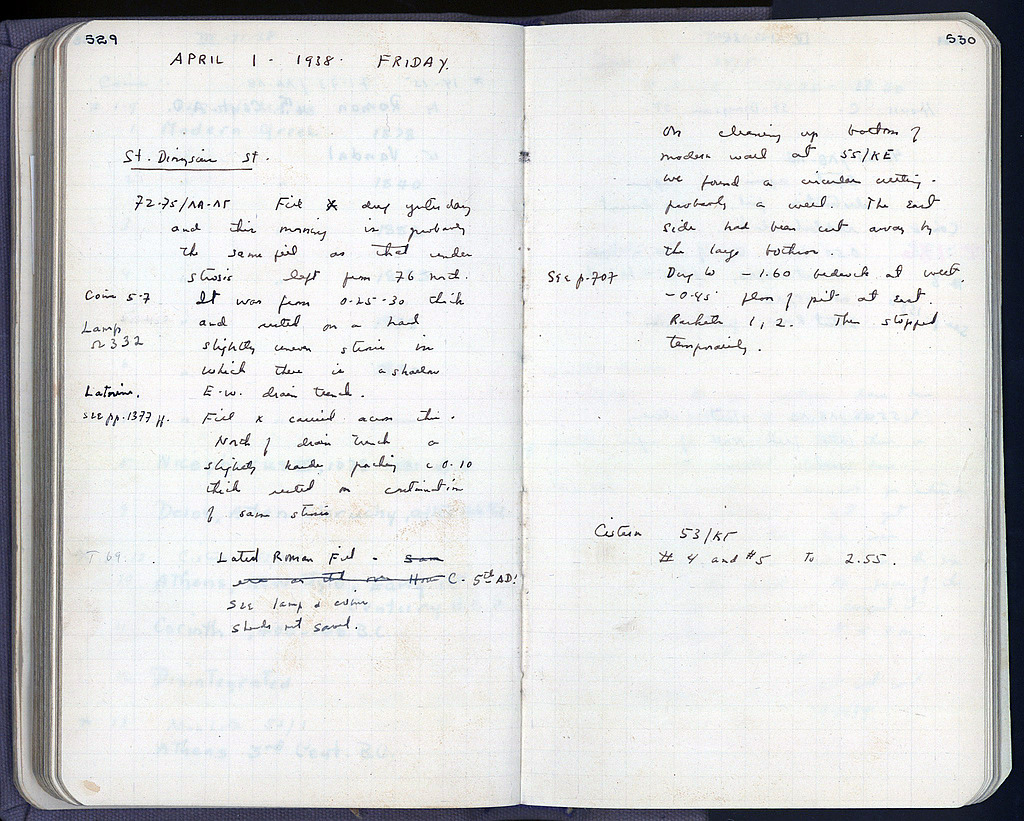 529
APRIL 1 - 1938. FRIDAY.
St. Dionysius St.
72-75/ΛΑ-ΛΓ Fill x dug yesterday
and this morning is probably
the same fill as that under
strosis left from 76 north.
Coin 5-7 It was from 0.25-.30 thick
and rested on a hard
Lamp
Λ332
slightly uneven strosis in
which there is a shallow
Latrine. E-W. drain trench.
see pp. 1377 ff. Fill x carried across this.
North of drain trench a
slightly harder packing c 0.10
thick rested on continuation
of same strosis
T 69. Late Roman Fill - C. 5th AD!
see lamp & coins
sherds not saved.
530
On cleaning up bottom of
modern well at 55/ΚΕ
we found a circular cutting -
probably a well. The east
side had been cut away by
the large bothros.
See p. 707 Dug to -1.60 bedrock at west
-0.45 floor of pit at east.
Baskets 1, 2. Then stopped
temporarily.
Cistern 53/ΚΓ
# 4 and #5 To 2.55.